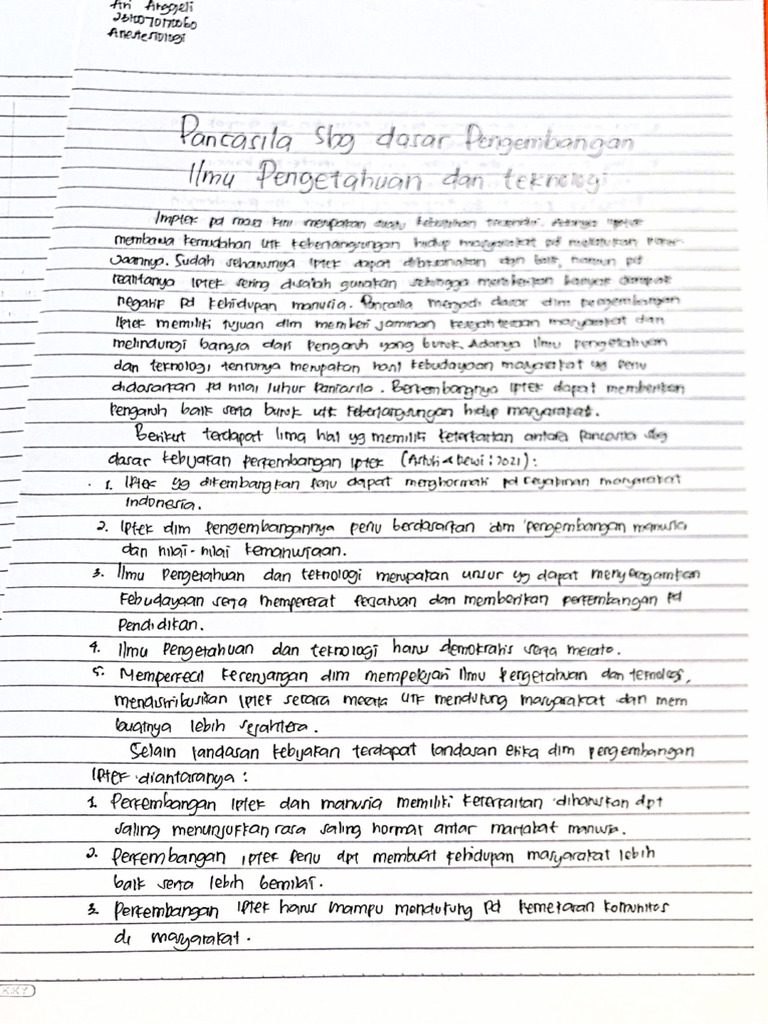 Ari Anggeli
Anestesiologi
Pancasila Sbg dasar Pengembangan
Ilmu Pengetahuan dan teknologi
Imptek pd masa kini merupakan suatu kebutuhan tersendiri. Adanya iptek
membawa kemudahan utk keberlangsungan hidup masyarakat pd melakukan
Sudah seharusnya iptek dapat digunakan dgn baik, namun pd
realitanya iptek sering disalah gunakan sehingga memberikan banyak dampak
negatif pd kehidupan manusia. Pancasila menjadi dasar dlm pengembangan
Iptek memiliki tujuan dlm memberi jaminan kesejahteraan masyarakat dan
melindungi bangsa dari pengaruh yang buruk. Adanya ilmu pengetahuan
dan teknologi tentunya merupakan hasil kebudayaan masyarakat yg perlu
didasarkan pd nilai luhur Pancasila. Berkembangnya iptek dapat memberikan
pengaruh baik serta buruk utk keberlangsungan hidup masyarakat.
Berikut terdapat lima hal yg memiliki keterkaitan antara pancasila sbg
dasar kebijakan perkembangan iptek (Astuti & Dewi : 2021) :
1. Iptek yg dikembangkan perlu dapat menghormati pd keyakinan masyarakat
Indonesia.
2. Iptek dlm pengembangannya perlu berdasarkan dlm pengembangan manusia
dan nilai-nilai kemanusiaan.
3. Ilmu Pengetahuan dan teknologi merupakan unsur yg dapat menyeragamkan
kebudayaan serta mempererat persatuan dan memberikan perkembangan pd
Pendidikan.
4. Ilmu Pengetahuan dan teknologi harus demokratis serta merata.
5. Memperkecil kesenjangan dlm mempelajari Ilmu pengetahuan dan teknologi,
mendistribusikan iptek secara merata utk mendukung masyarakat dan mem
buatnya lebih sejahtera.
Selain landasan kebijakan terdapat landasan etika dlm pengembangan
iptek diantaranya :
1. Perkembangan iptek dan manusia memiliki keterkaitan diharuskan dpt
saling menunjukkan rasa saling hormat antar martabat manusia.
2. Perkembangan iptek perlu dpt membuat kehidupan masyarakat lebih
baik serta lebih bernilai.
3. Perkembangan iptek harus mampu mendukung pd pemekaran komunitas
di masyarakat.
KIKY